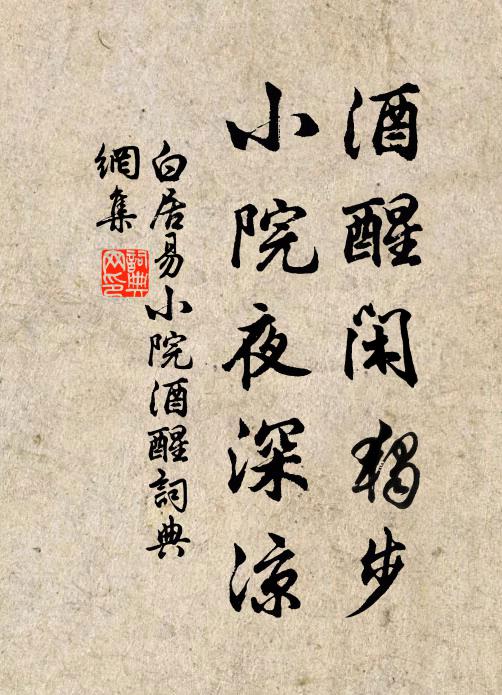 酒醒閑獨步
小院夜深涼
白居易小院酒醒詞典
網集
詞典網印